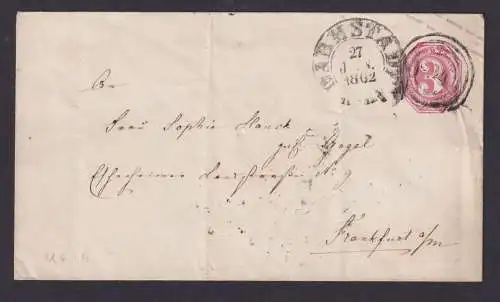 DARMSTADT
27
JAN.
1862
3
An
Frau Sophie Hauck
geb. Vogel
Eschersheimer Landstrasse No 9
Frankfurt a/m